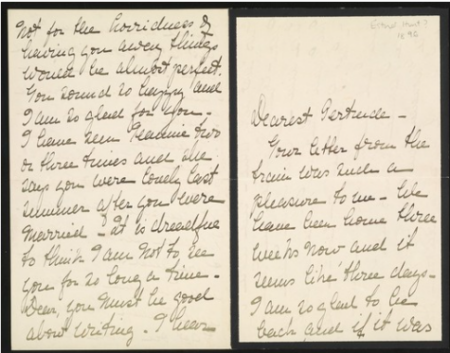 Dearest Gertrude –
Your letter from the
train was such a
pleasure to me – We
have been home three
weeks now and it
seems like three days –
I am so glad to be
back and if it was
not for the horridness of
having you away things
would be almost perfect.
You sound so happy and
I am so glad for you –
I have seen Jeannie two
or three times and she
says you were lovely last
summer after you were
married – It is dreadful
to think I am not to see
you for so long a time –
Dear, you must be good
about writing. I hear